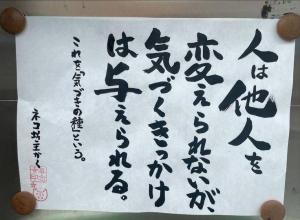 人は他人を
変えられないが、
気づくきっかけ
は与えられる。
これを「気づきの種」という。
ネコ坊主がく